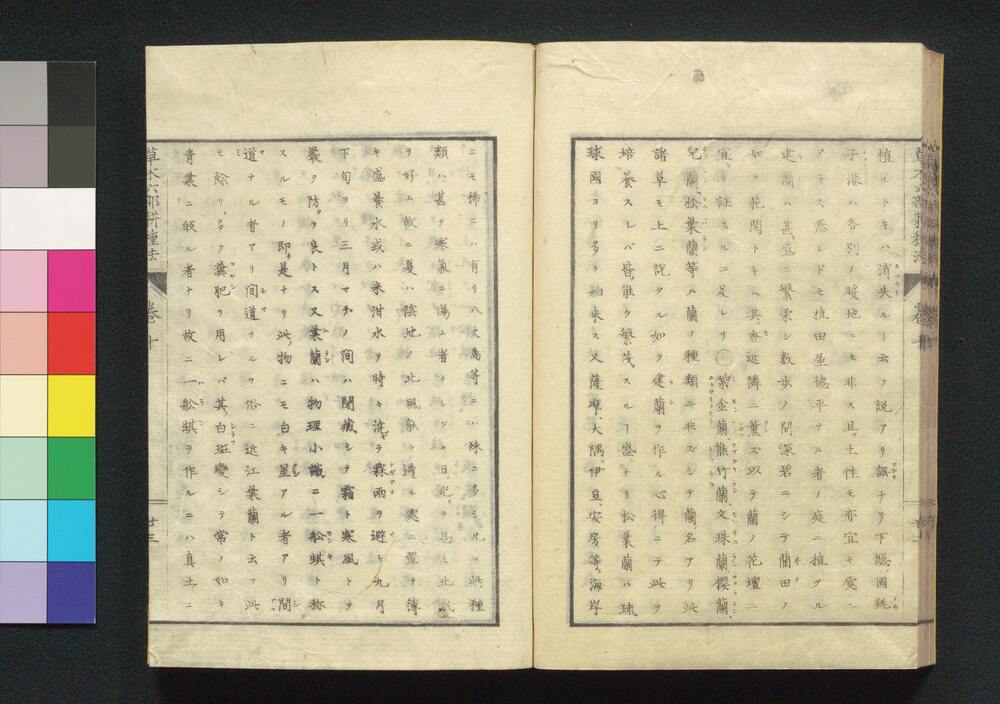 植ルトキハ消失ルト云フ説アリ誤ナリ下總國銚
子港ハ各別ノ暖地ニモ非ス且土性モ亦宜キ處ニ
アラス然レドモ植田 德平ナル者ノ庭ニ植タル
建蘭ハ甚盛ニ繁栄シ数歩ノ間深碧ニシテ蘭田ノ
如ク花開トキハ其香近隣ニ薫ズ以テ蘭ノ花壇ニ
宜キ 証スルニ足レリ○紫金蘭 竹蘭文珠蘭櫻蘭
兒蘭松葉蘭等ハ蘭ノ種類ニ非ズシテ蘭名アリ此
諸草モ上ニ説タル如ク建蘭ヲ作ル心得ニテ此ヲ
培養スレバ皆能ク繁茂スル 盛ナリ松葉蘭ハ琉
球國ヨリ多ク舶来ス又薩摩大隅伊豆安房等ノ海岸
草木六部耕種法 巻十
ニモ稀ニハ有リ八丈島等ニハ殊ニ多シ 此種
類ハ甚タ寒氣ニ傷ム者 レドモ日光ヲ忌 北
ヲ好ム故ニ夏ハ陰地ノ北風 透ル處ニ置キ薄
キ盛養水或ハ米泔水ヲ時々澆ギ霖雨ヲ避ケ九月
下旬ヨリ三月マデノ間ハ閉藏シテ霜ト寒風トヲ
嚴ク防クヲ良トス又葉蘭ハ物理小識ニ一舩蜞ト称
スルモノ即是ナリ此物ニモ白キ星アル者アリ間
道ナル者アリ間道ナルヲ俗ニ近江葉蘭ト云フ此
モ餘リ多ク糞肥ヲ用レバ其白斑變シテ常ノ如キ
青葉ニ皈ル者ナリ故ニ一舩蜞ヲ作ルニハ真土ニ
草木六部耕種法 巻十 廿三